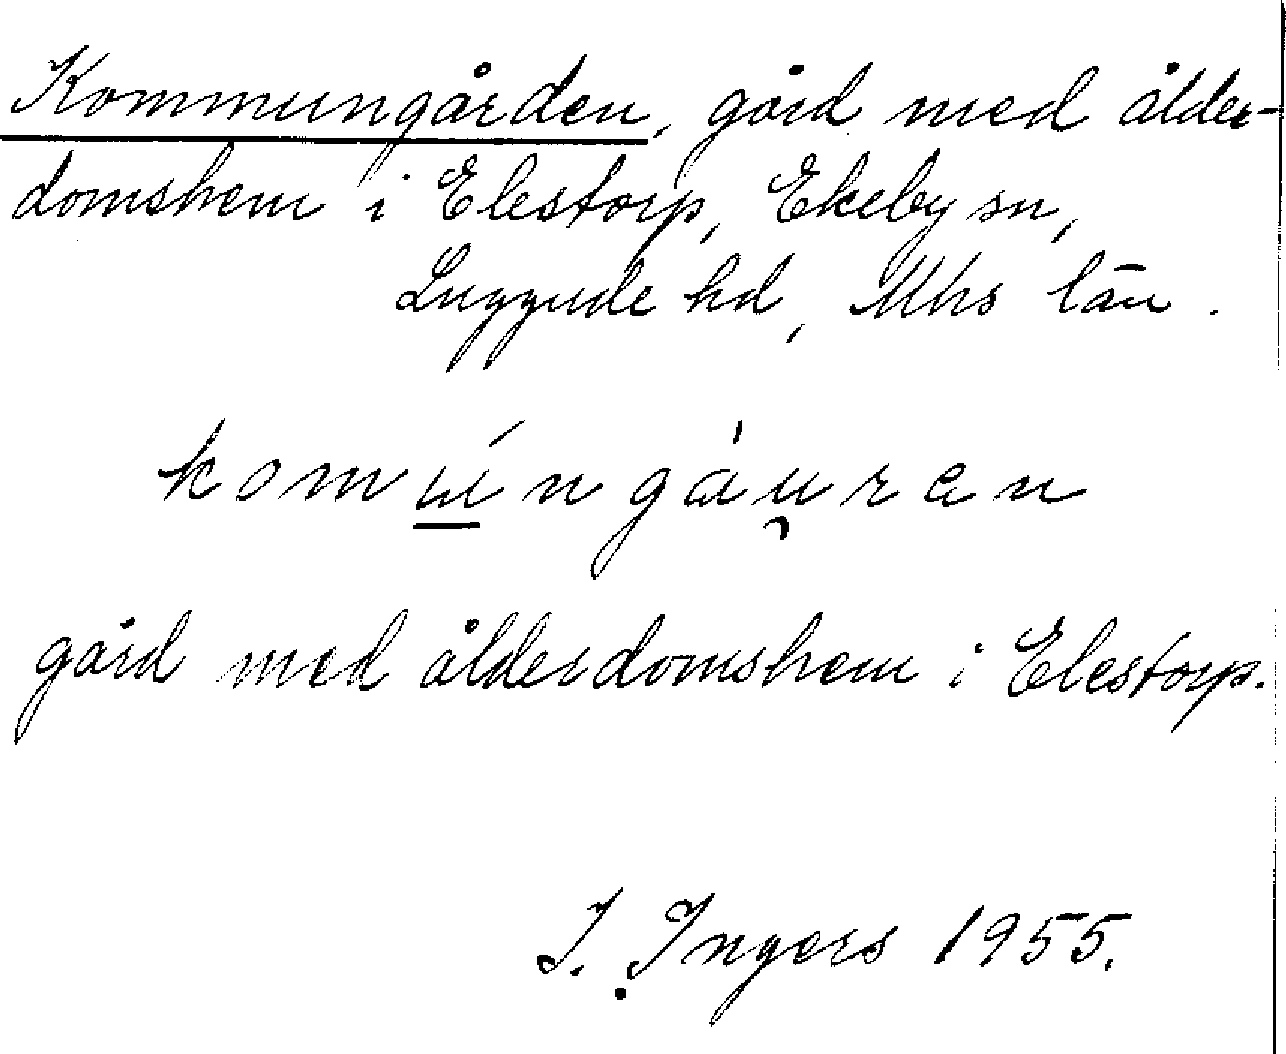 Kommungården, gård med ålder-
domshem i Elestorp, Ekeby sn,
Luggude hd, Mhs län.
komúngàu̯ren
gård med ålderdomshem i Elestorp.
I. Ingers 1955.